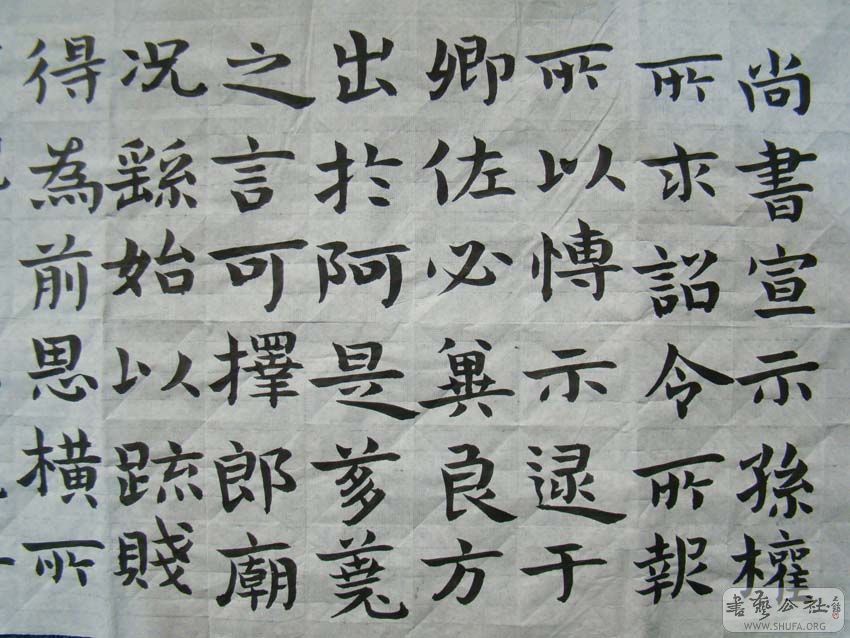 尚書宣示孫權
所求詔令所報
所以愽示逮于
卿佐必冀良方
出於阿是芻蕘
之言可擇郎廟
况繇始以疏賤
得為前恩橫所
書藝公社
WWW.SHUFA.ORG